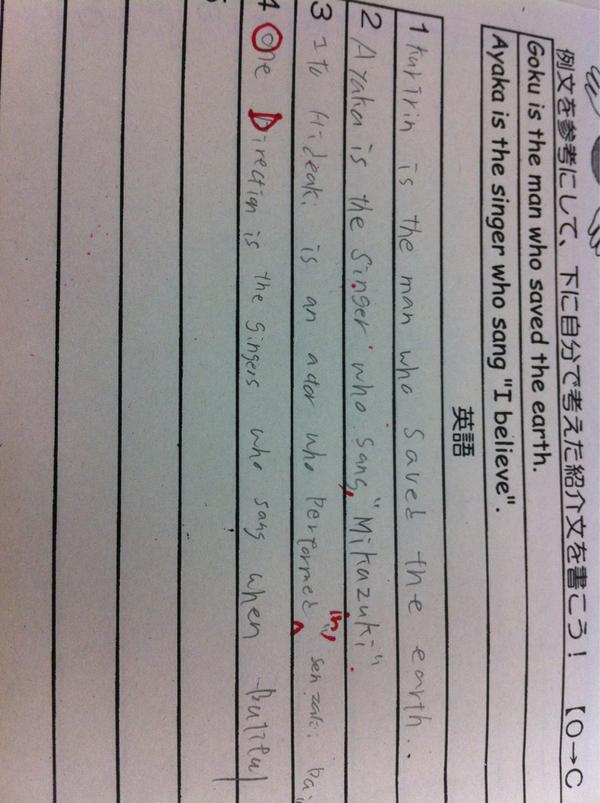 例文を参考にして、下に自分で考えた紹介文を書こう！ 【O→C
Goku is the man who saved the earth.
Ayaka is the singer who sang "I believe".
英語
1 Kuririn is the man who saved the earth..
2 Ayaka is the singer who sang, "Mikazuki".
3 Ito Hideaki is an actor who performed in, "senzaki
4 One Direction is the singers who sang when
5